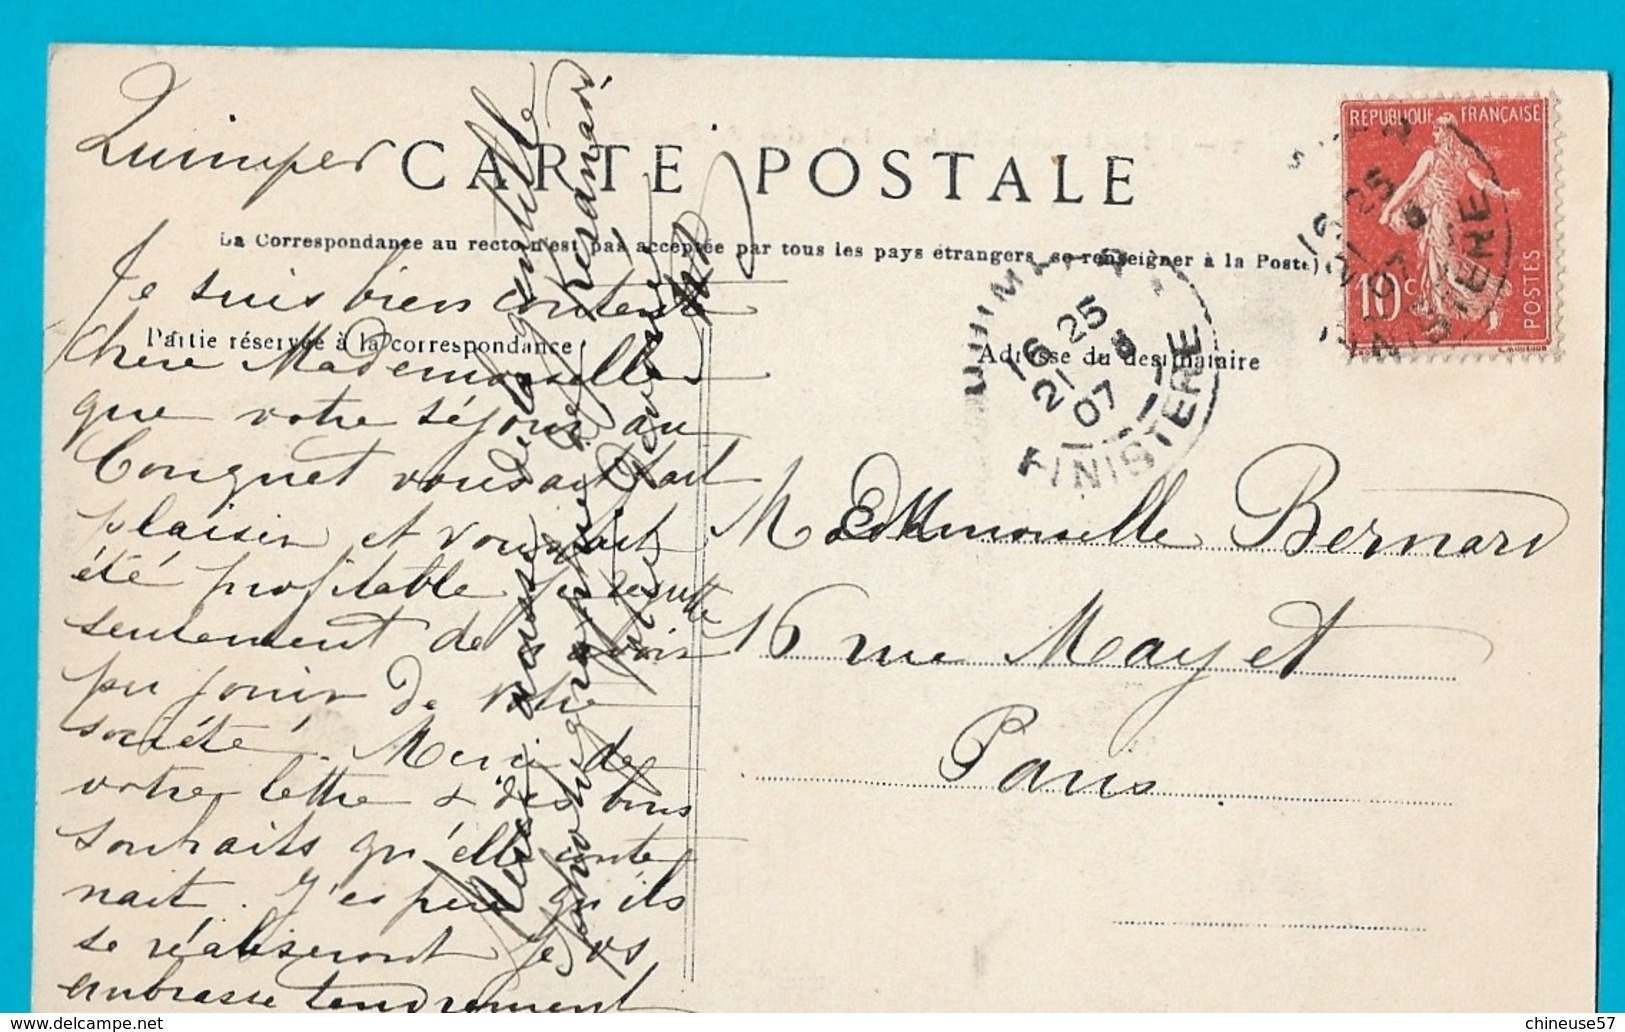 Quimper
CARTE POSTALE
La Correspondance au recto n'est pas acceptée par tous les pays étrangers, se renseigner à la Poste)
Partie réservée à la correspondance
Je suis bien contente
Chère Mademoiselle
que votre séjour au
Conquet vous ait fait
plaisir et vous ait
été profitable je regrette
seulement de n'avoir
pu jouir de votre
société. Merci de
votre lettre & des bons
souhaits qu'elle conte
nait. J'espère qu'ils
se réaliseront Je vs
embrasse tendrement
Merci aussi de la gentille
photographie de Keranais
Adresse du destinataire
Mademoiselle Bernard
16 rue Mayet
Paris
REPUBLIQUE FRANÇAISE
10 c
POSTES
QUIMPER
16 25
21 8
07
FINISTERE
16 25
21 8
07
FINISTERE
chineuse57